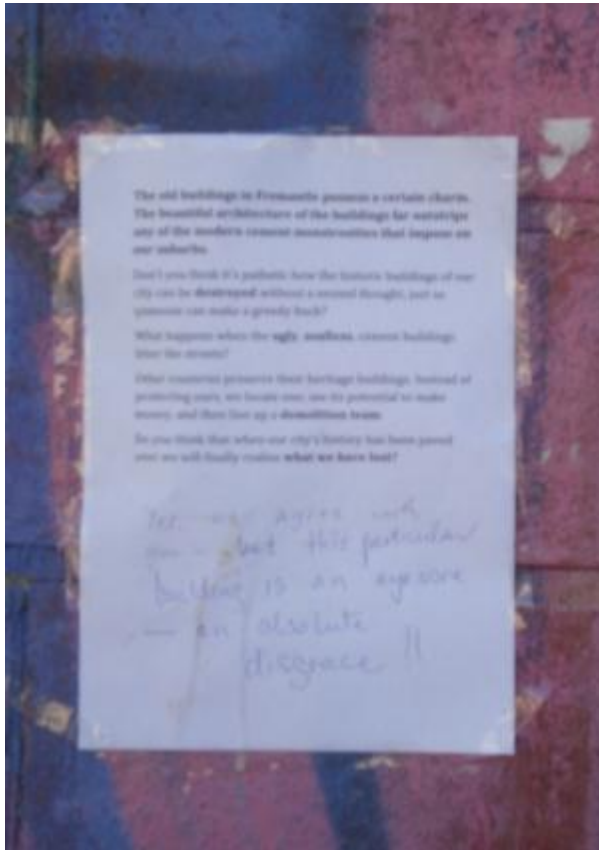 The old buildings in Fremantle possess a certain charm.
The beautiful architecture of the buildings far outstrips
any of the modern cement monstrosities that impose on
our suburbs.
Don't you think it's pathetic how the historic buildings of our
city can be destroyed without a second thought, just so
someone can make a greedy buck?
What happens when the ugly, soulless, cement buildings
litter the streets?
Other countries preserve their heritage buildings. Instead of
protecting ours, we locate one, see its potential to make
money, and then line up a demolition team.
Do you think that when our city's history has been paved
over we will finally realise what we have lost?
Yes agree with
you - but this particular
building is an eyesore
— an absolute
disgrace !!